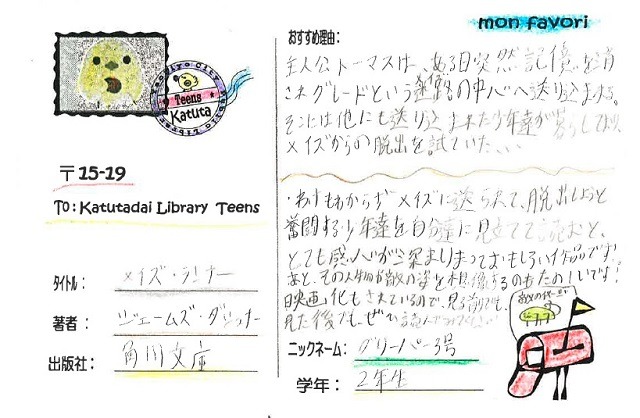 mon favori
Yachiyo City
Teens
Katuta
〒15-19
To: Katutadai Library Teens
タイトル: メイズ・ランナー
著者: ジェームズ・ダシュナー
出版社: 角川文庫
おすすめ理由:
主人公トーマスは、ある日突然記憶を消
されグレードという迷路の中心へ送り込まれる。
そこには他にも送り込まれた少年達が暮らしており、
メイズからの脱出を試ていた、、、
・わけもわからずメイズに送られて、脱出しようと
奮闘する少年達を自分達に見立てて読むと、
とても感心が深まりまっておもしろい作品です!
あと、その人物や敵の姿を想像するのもたのしいです!
映画化もされているので、見る前でも、
見た後でも、ぜひ読んでみてください
ニックネーム: グリーバー3号
学年: 2年生